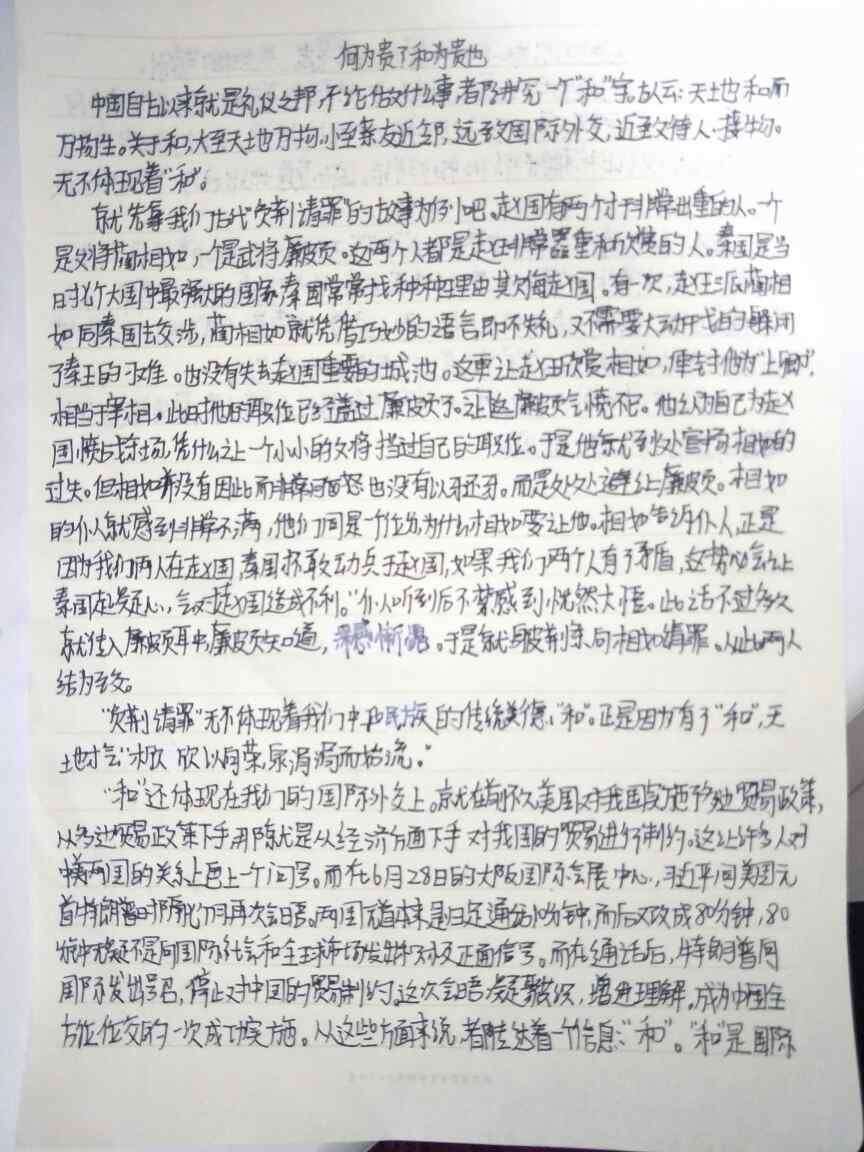 何为贵？和为贵也
中国自古以来就是礼仪之邦,不论做什么事都讲究一个"和"字。古人云:天土也和而
万物生。关于和,大至天土也万物,小至亲友近邻,远至国际外交,近至待人接物。
无不体现着"和"。
就先拿我们古代"负荆请罪"的故事为例吧。赵国有两个才干非常出重的人。一个
是文将蔺相如,一个是武将廉颇。这两个人都是赵王非常器重和欣赏的人。秦国是当
时七个大国中最强大的国家,秦国常常找种种理由其欠侮赵国。有一次,赵王派蔺相
如同秦国去交涉,蔺相如就凭借巧妙的语言即不失礼,又不需要大动干戈的躲开
了秦王的刁难。也没有失去赵国重要的城池。这更让赵王欣赏相如,便封他为"上卿",
相当于宰相。此时他的职位已经盖过廉颇了。让这廉颇气愤不已。他认为自己为赵
国愤战场,凭什么让一个小小的文将挡过自己的职位。于是他就到处宣扬相如的
过失。但相如并没有因此而非常恼怒也没有以牙还牙。而是处处避让廉颇。相如
的仆人就感到非常不满,他们同是一个位分为什么相如要让他。相如告诉仆人,正是
因为我们两人在赵国,秦国不敢动兵于赵国,如果我们两个人有了矛盾,这势必会让
秦国起疑心,会对赵国造成不利。"仆人听到后不禁感到恍然大悟。此话不过多久
就传入廉颇耳中,廉颇知道,深感惭愧。于是就身披荆条向相如请罪。从此两人
结为至交。
"负荆请罪"无不体现着我们中华民族的传统美德:"和"。正是因为有了"和",天
土也才会"木欣欣以向荣,泉涓涓而始流。"
"和"还体现在我们的国际外交上。就在前不久美国对我国实施多边贸易政策,
从多边贸易政策下手用陈就是从经济方面下手对我国的贸易进行制约。这让许多人对
中美两国的关系上画上一个问号。而在6月28日的大阪国际会展中心,习近平同美国元
首特朗普时隔几个月再次会晤。两国元首本来是归定通分10分钟,而后又改成80分钟,80
分钟无疑不是向国际社会和全球市场发出积极正面信号。而在通话后,特朗普同
国际发出号召,停止对中国的贸易制约。这次会晤凝聚共识,增进理解。成为中国全
方位外交的一次成功实施。从这些方面来说,都传达着一个信息:"和"。"和"是国际